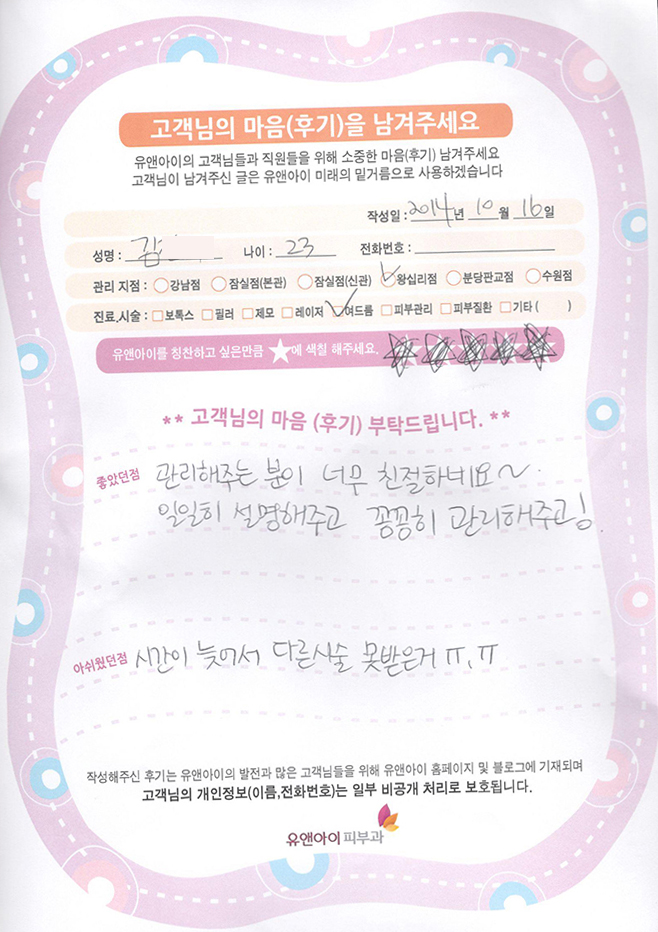 고객님의 마음(후기)을 남겨주세요
유앤아이의 고객님들과 직원들을 위해 소중한 마음(후기) 남겨주세요
고객님이 남겨주신 글은 유앤아이 미래의 밑거름으로 사용하겠습니다
작성일 : 2014년 10월 16일
성명 : 김 나이 : 23 전화번호 :
관리 지점 : 강남점 잠실점(본관) 잠실점(신관) 왕십리점 분당판교점 수원점
진료.시술 : 보톡스 필러 제모 레이저 여드름 피부관리 피부질환 기타 ( )
유앤아이를 칭찬하고 싶은만큼 ★에 색칠 해주세요.
** 고객님의 마음 (후기) 부탁드립니다. **
좋았던점 관리해주는 분이 너무 친절하네요~
일일히 설명해주고 꽁꽁히 관리해주고!
아쉬웠던점 시간이 늦어서 다른시술 못받은거 ㅠ,ㅠ
작성해주신 후기는 유앤아이의 발전과 많은 고객님들을 위해 유앤아이 홈페이지 및 블로그에 기재되며
고객님의 개인정보(이름,전화번호)는 일부 비공개 처리로 보호됩니다.
유앤아이 피부과